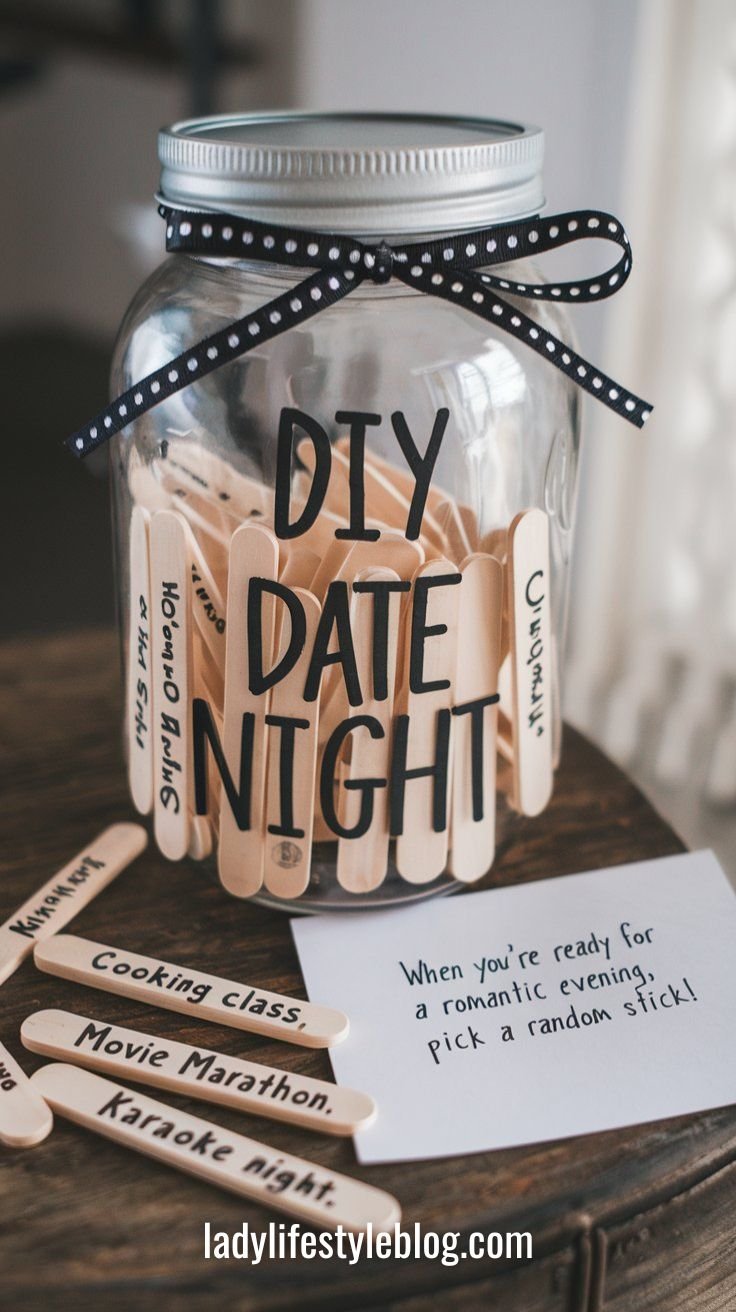 DIY
DATE
NIGHT
When you're ready for
a romantic evening,
pick a random stick!
Cooking class,
Movie Marathon.
Karaoke night.
ladylifestyleblog.com